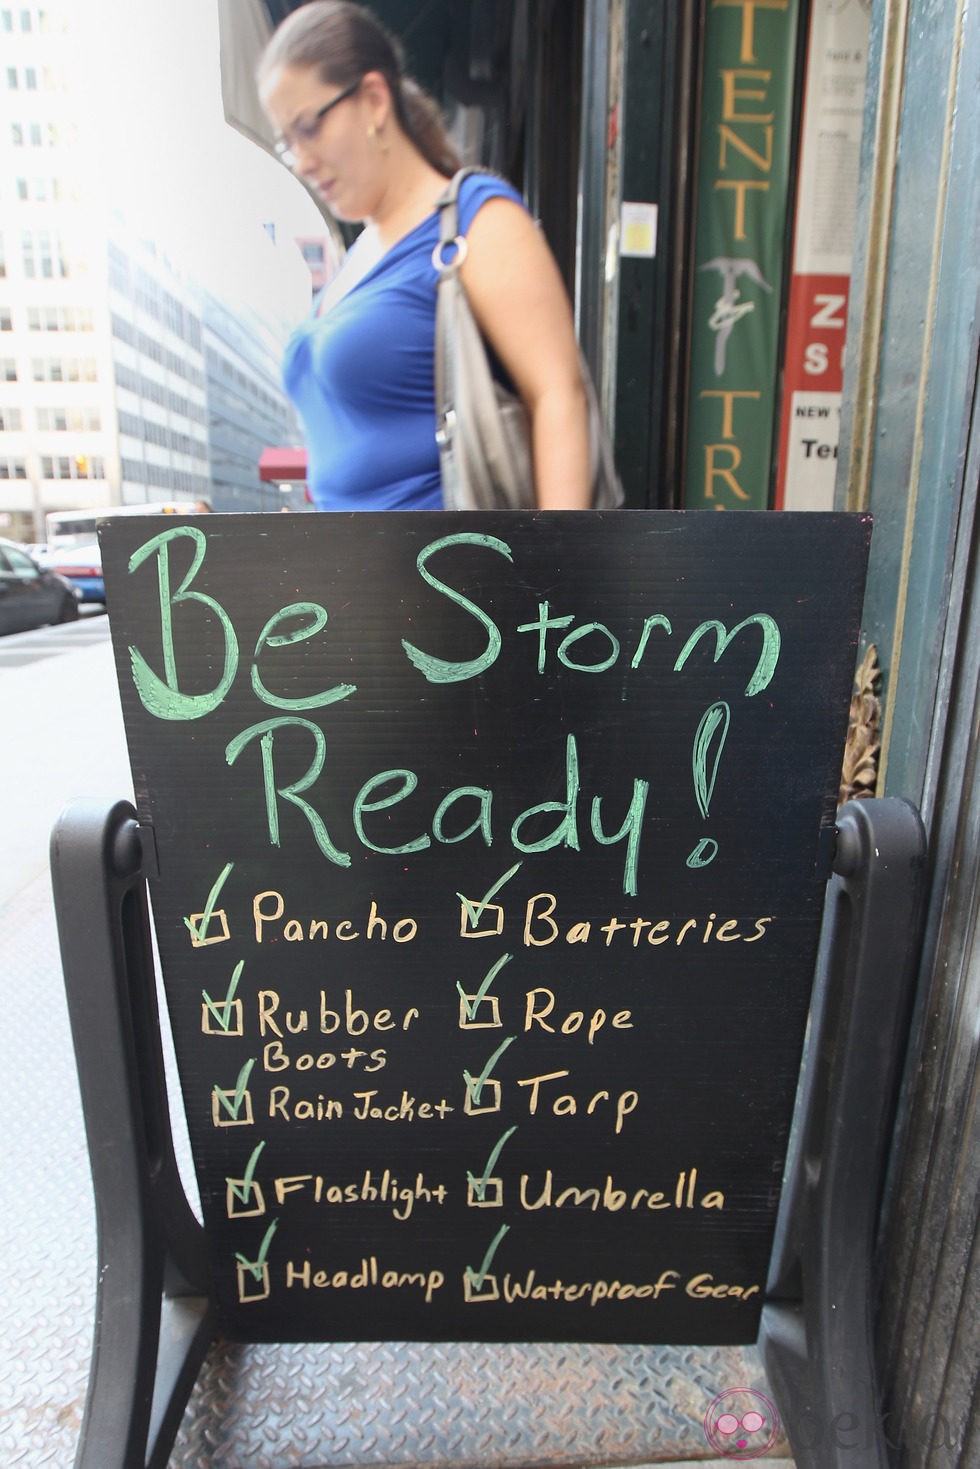 TENT
&
Z
S
NEW
Be Storm
Ready!
Pancho
Batteries
Rubber
Boots
Rope
Rain Jacket
Tarp
Flashlight
Umbrella
Headlamp
Waterproof Gear